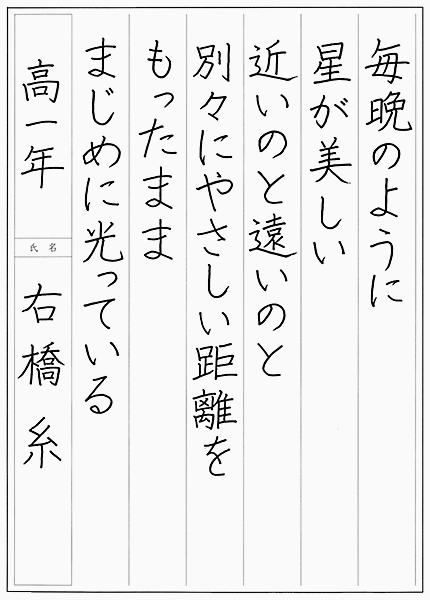 毎晩のように
星が美しい
近いのと遠いのと
別々にやさしい距離を
もったまま
まじめに光っている
高一年
氏名
右橋 糸